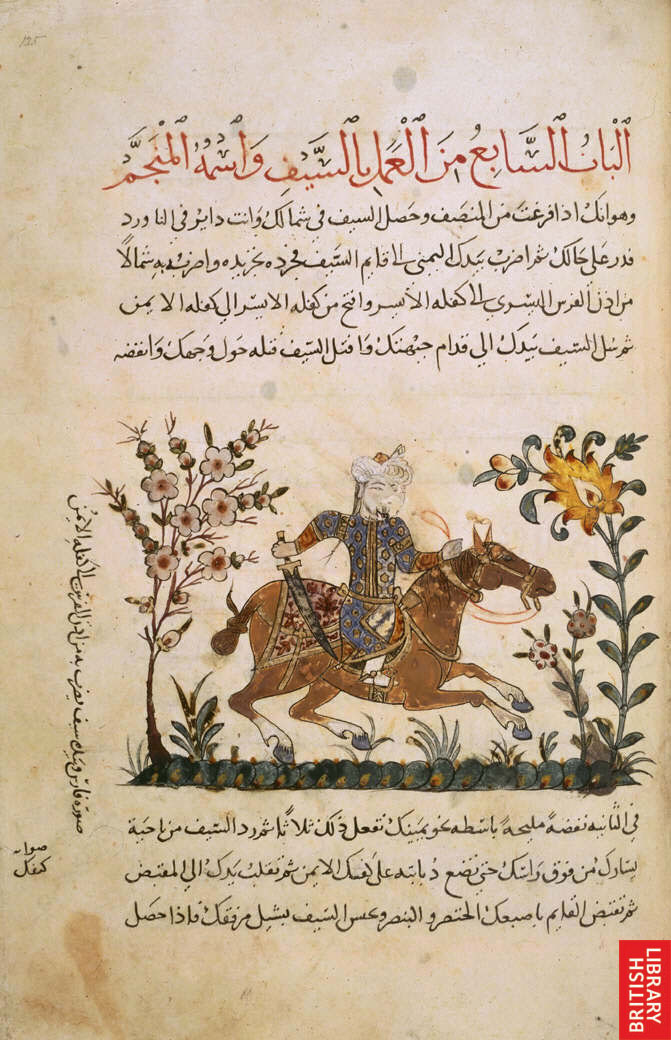 الباب السابع من العمل بالسيف واسمه المنجم
وهو انك اذا فرغت من المنصف وحصل السيف في شمالك وانت داير في الناورد
فدر على حالك ثم اضرب بيدك اليمنى الى قايم السيف فجرده تجريده واضرب به شمالا
من اذن الفرس اليسرى الى كفله الأيسر وافتح من كفله الايسر الى كفله الايمن
ثم شل السيف بيدك الى قدام جبهتك وافتل السيف فتله حول وجهك وانفضه
صورة فارس وبيده سيف يضرب به من اذن الفرس الى كفله الايمن
في الثانيه نفضه مليحة باسطه نحو يمينك تفعل ذلك ثلاثا ثم رد السيف من ناحية
يسارك من فوق راسك حتى تضع ذبابته على كفك الايمن ثم تقلب يدك الى المقبض
ثم تقبض القايم باصبعك الخنصر والبنصر وعس السيف بشيل مرفقك فاذا حصل
صوابه
كتفك
125
BRITISH LIBRARY